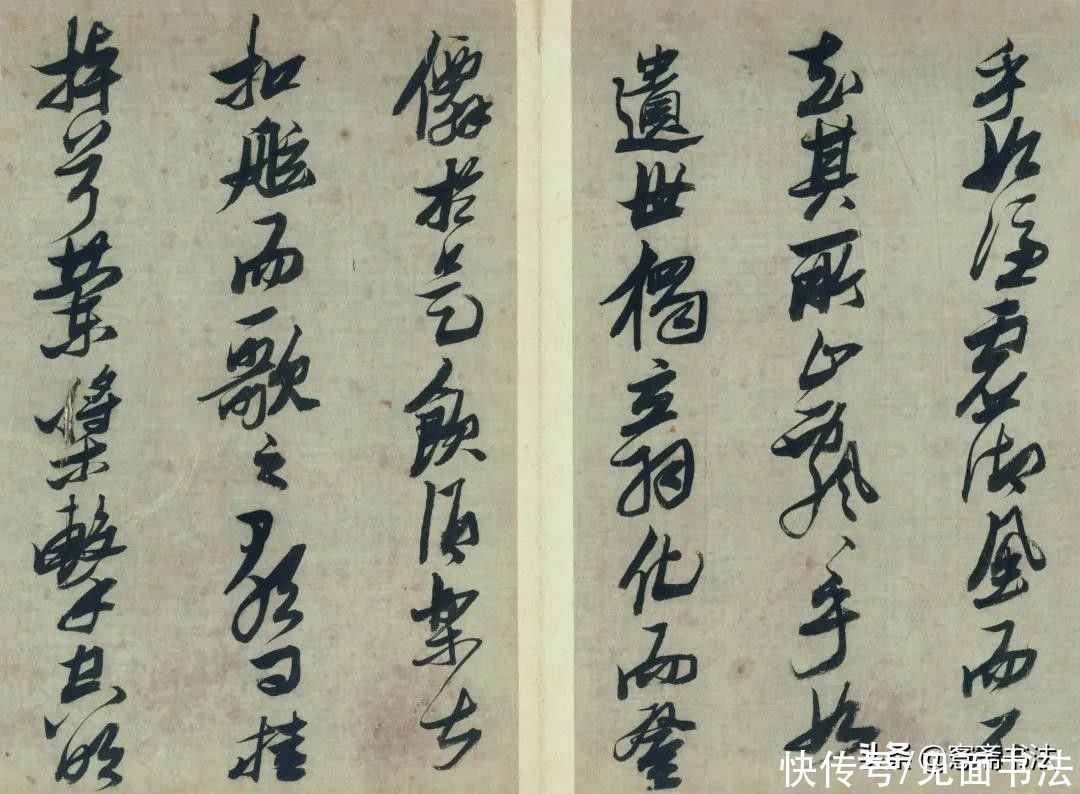 乎如馮虛御風而不
知其所止飄飄乎如
遺世獨立羽化而登
僊於是飲酒樂甚
扣舷而歌之歌曰桂
棹兮蘭槳擊空明
快传号/见面书法